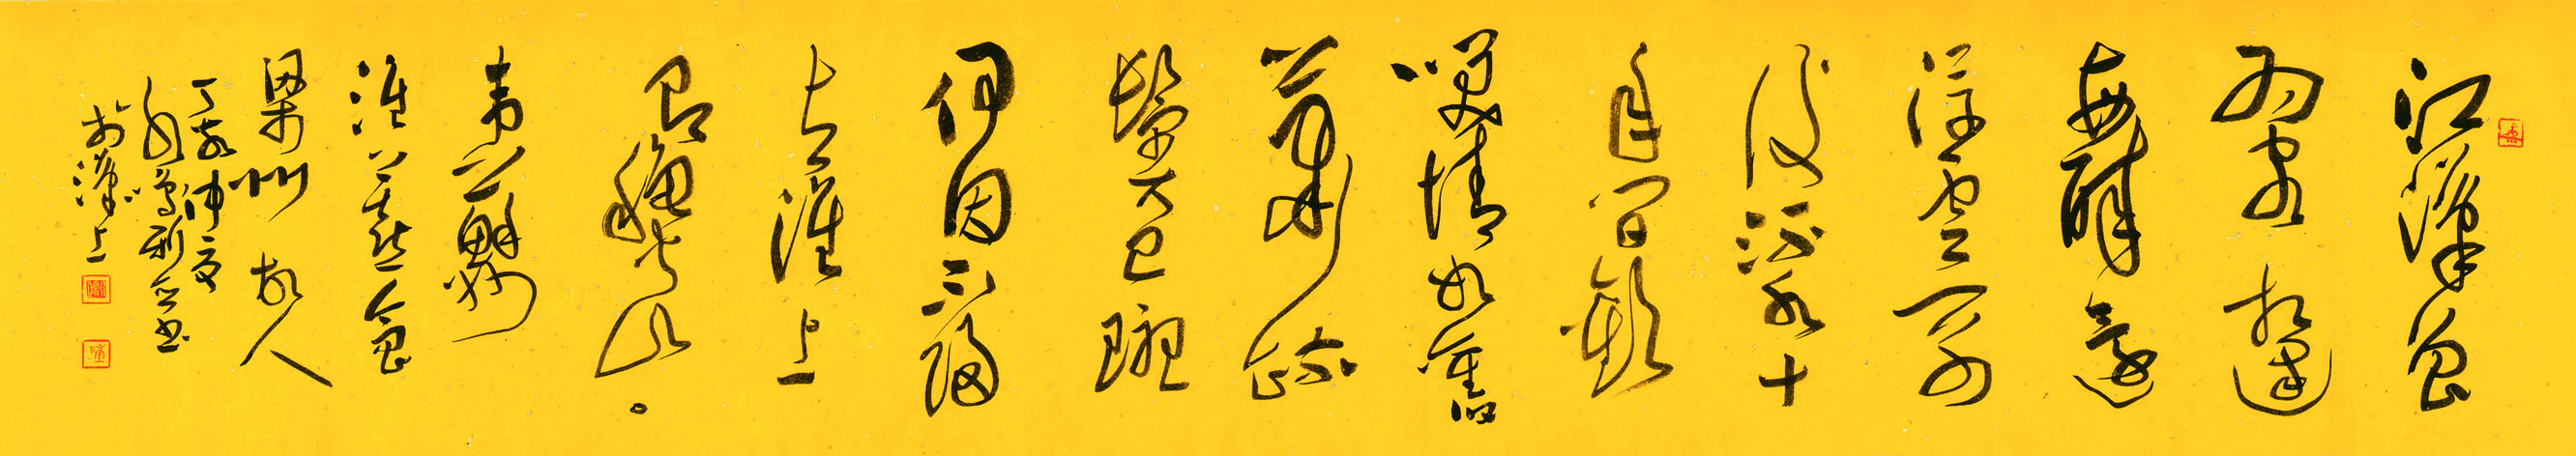 江漢曾
為客相逢
每醉還
浮雲一別
後流水十
年間歡
笑情如舊
蕭疏
鬢已斑
何因不歸
去淮上
秋山
韋蘇州
淮上喜會
梁州故人
丁亥仲夏
書
於漢上